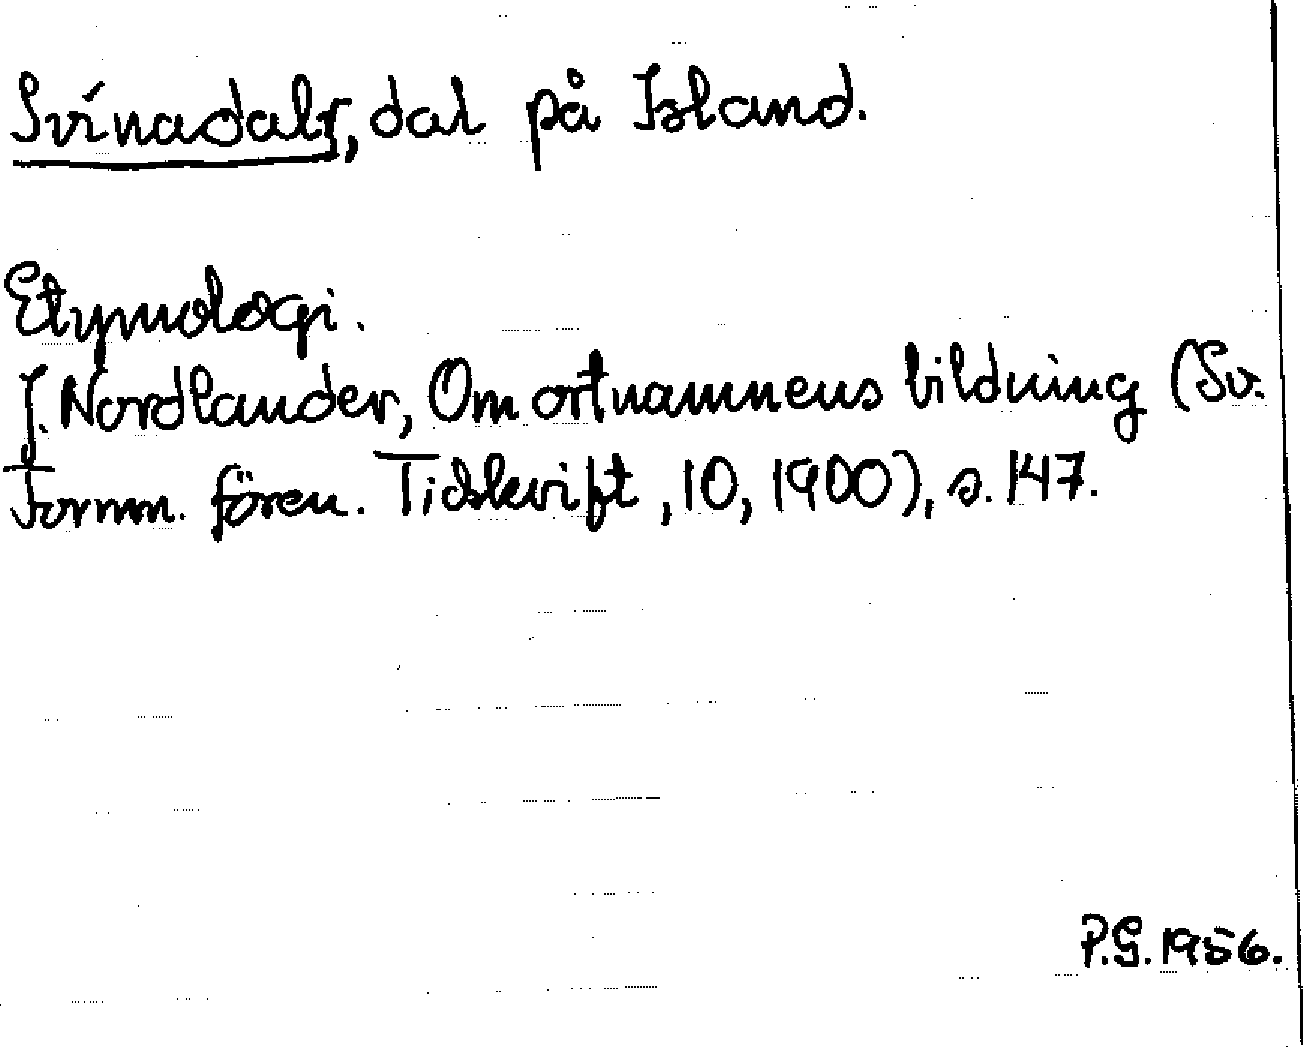 Svínadalr, dal på Island.
Etymologi.
J. Nordlander, Om ortnamnens bildning (Sv.
Fornm. fören. Tidskrift, 10, 1900), s. 147.
P.G. 1956.